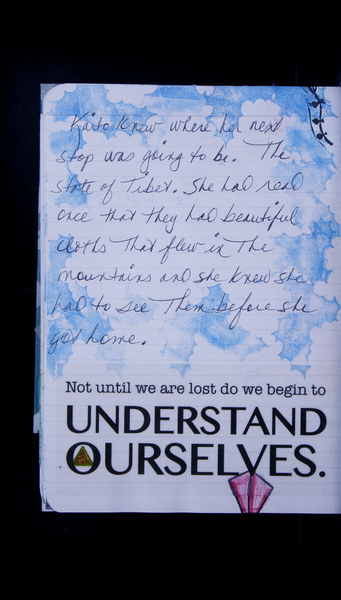 Kaito knew where her next
stop was going to be. The
state of Tibet. She had read
once that they had beautiful
cloths that flew in The
mountains and she knew she
had to see Them before she
got home.
Not until we are lost do we begin to
UNDERSTAND
OURSELVES.